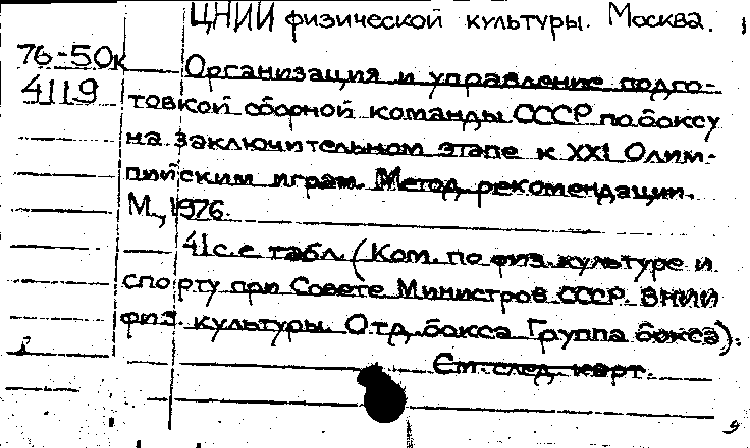 ЦНИИ физической культуры. Москва.
76-50к
4119
Организация и управление подго-
товкой сборной команды СССР по боксу
на заключительном этапе к XXI Олим-
пийским играм. Метод. рекомендации.
М., 1976.
41 с. с табл. (Ком. по физ. культуре и
спорту при Совете Министров СССР. ВНИИ
физ. культуры. Отд. бокса. Группа бокса).
См. след. карт.